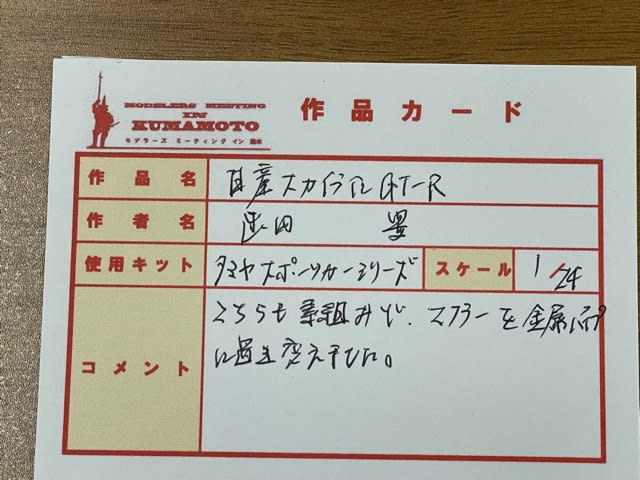 MODELERS MEETING
IN
KUMAMOTO
モデラーズ ミーティング イン 熊本
作品カード
作品名 日産スカイラインGT-R
作者名 田
使用キット タミヤスポーツカーシリーズ スケール 1/24
コメント こちらも素組みで、マフラーを金属パイプ
に置き変えました。